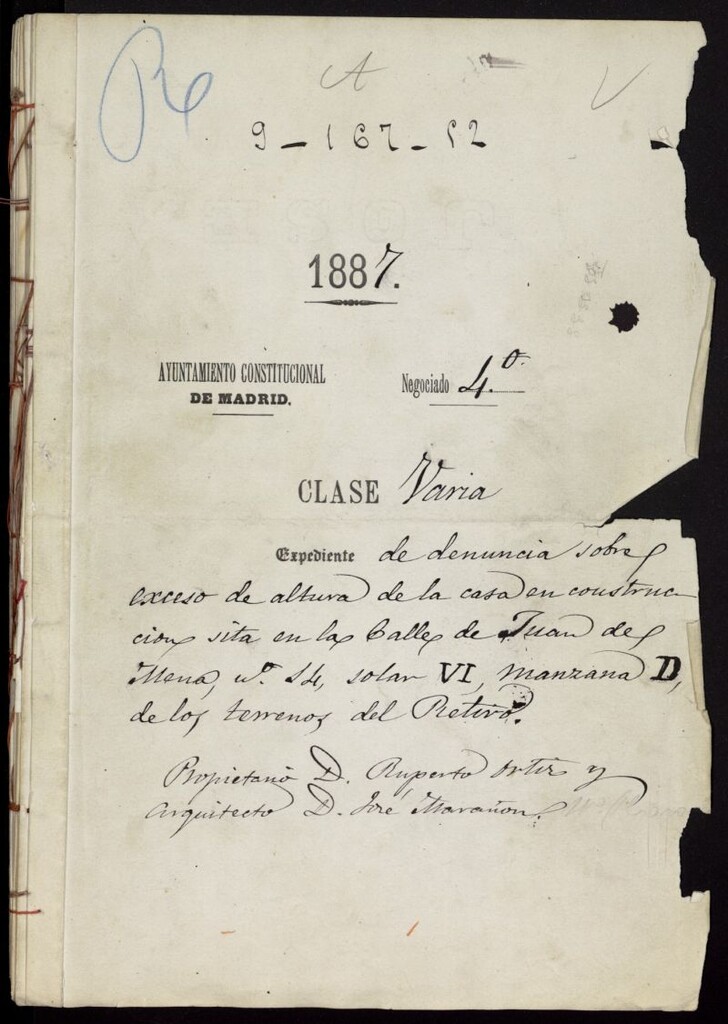 R
A
9-167-12
1887.
AYUNTAMIENTO CONSTITUCIONAL
DE MADRID.
Negociado 4.º
CLASE Varia
Expediente de denuncia sobre
exceso de altura de la casa en construc-
cion sita en la Calle de Juan de
Mena, nº 14, solar VI, manzana D,
de los terrenos del Retiro.
Propietario D. Ruperto Ortiz y
Arquitecto D. José Marañon.